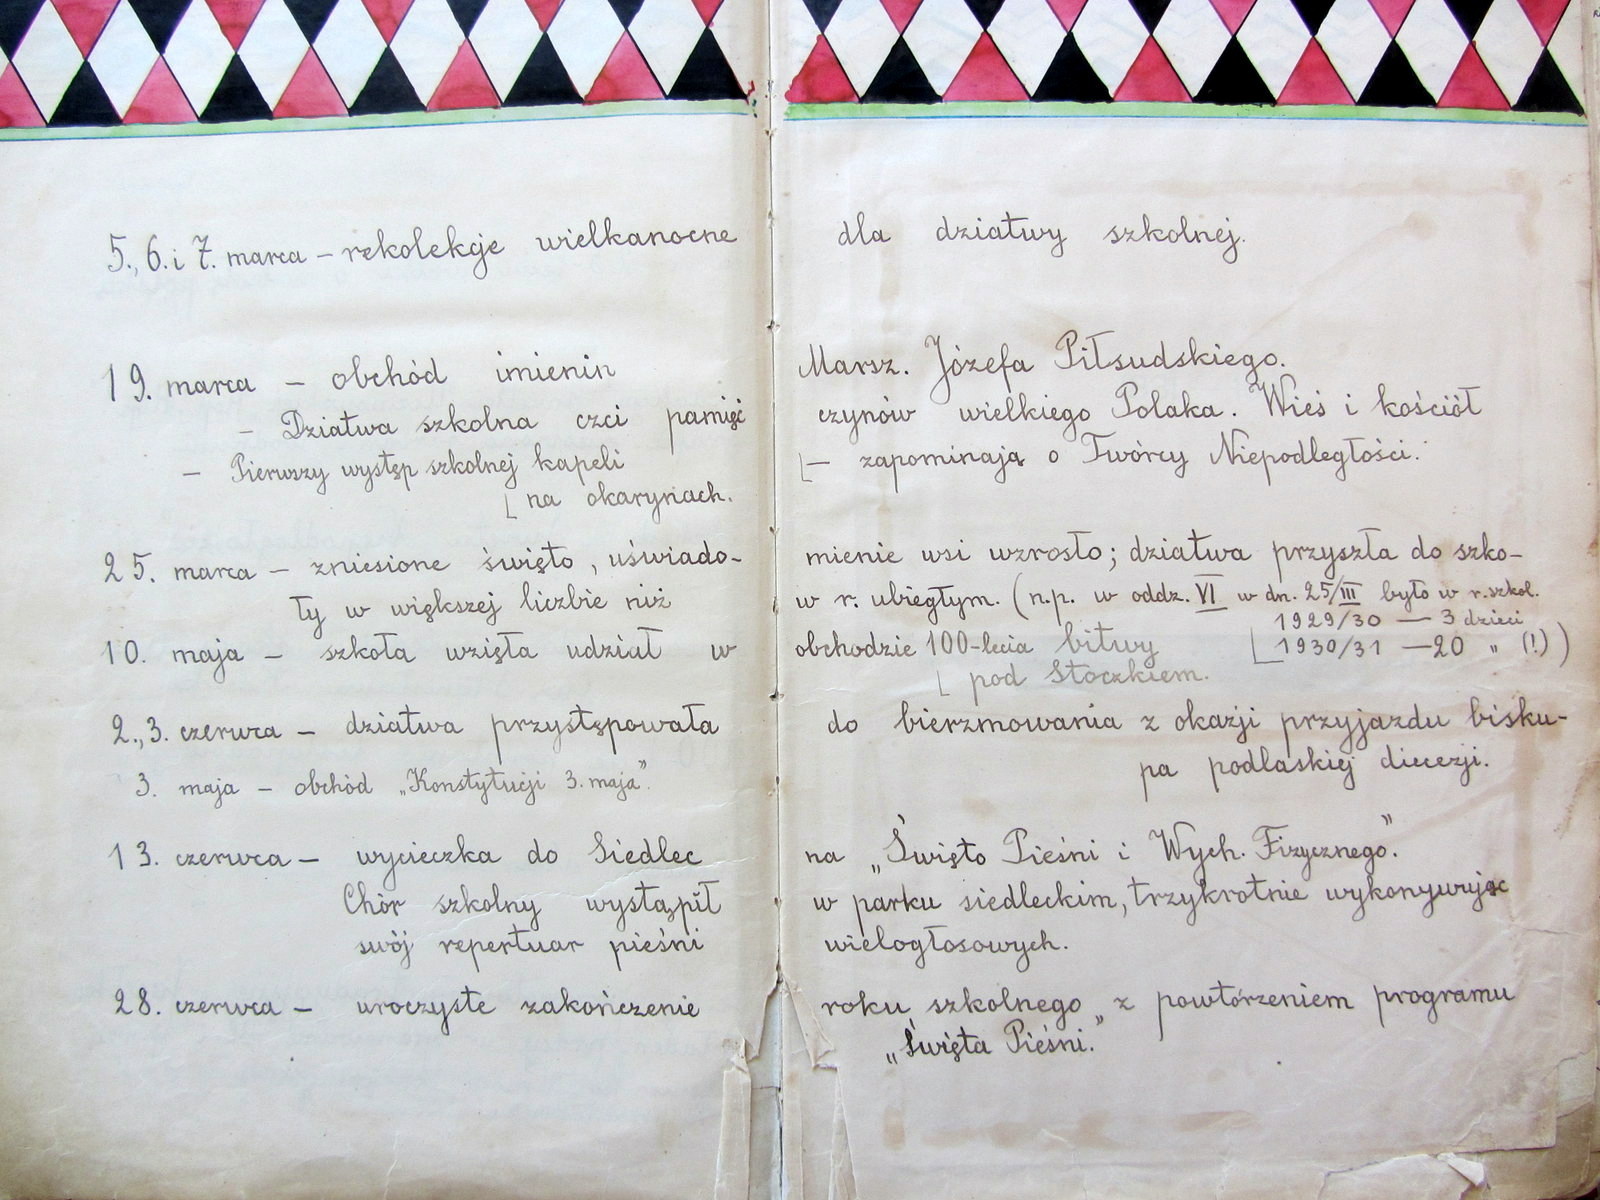 5., 6. i 7. marca – rekolekcje wielkanocne dla dziatwy szkolnej.
19. marca – obchód imienin Marsz. Józefa Piłsudskiego.
– Dziatwa szkolna czci pamięć czynów wielkiego Polaka. Wieś i kościół
– zapominają o Twórcy Niepodległości.
– Pierwszy występ szkolnej kapeli
na okarynach.
25. marca – zniesione święto, uświado- mienie wsi wzrosło; dziatwa przyszła do szko-
ły w większej liczbie niż w r. ubiegłym. (n.p. w oddz. VI w dn. 25/III było w r. szkol.
1929/30 — 3 dzieci
1930/31 — 20 „ (!))
10. maja – szkoła wzięła udział w obchodzie 100-lecia bitwy
pod Stoczkiem.
2., 3. czerwca – dziatwa przystępowała do bierzmowania z okazji przyjazdu bisku-
pa podlaskiej diecezji.
3. maja – obchód „Konstytucji 3. maja”.
13. czerwca – wycieczka do Siedlec na „Święto Pieśni i Wych. Fizycznego”.
Chór szkolny wystąpił w parku siedleckim, trzykrotnie wykonywując
swój repertuar pieśni wielogłosowych.
28. czerwca – uroczyste zakończenie roku szkolnego „z powtórzeniem programu
„Święta Pieśni.”